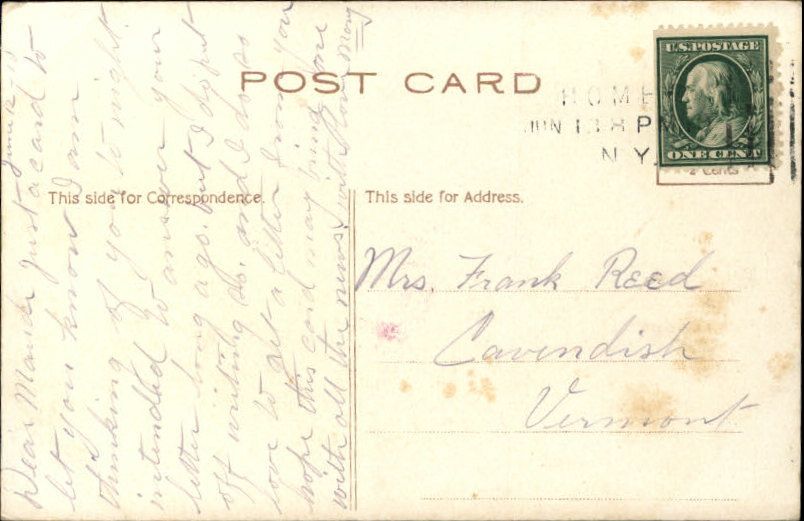 POST CARD
U.S. POSTAGE
ONE CENT
HOME
JUN 13 8 PM
N.Y.
2 Cents
This side for Correspondence.
This side for Address.
June 12
Dear Maude just a card to
let you know I am
thinking of you to night.
intended to answer your
letter long ago. but I do put
off writing so. and I do so
love to get a letter from you
hope this card may bring one
with all the news. with love Mary
Mrs. Frank Reed
Cavendish
Vermont